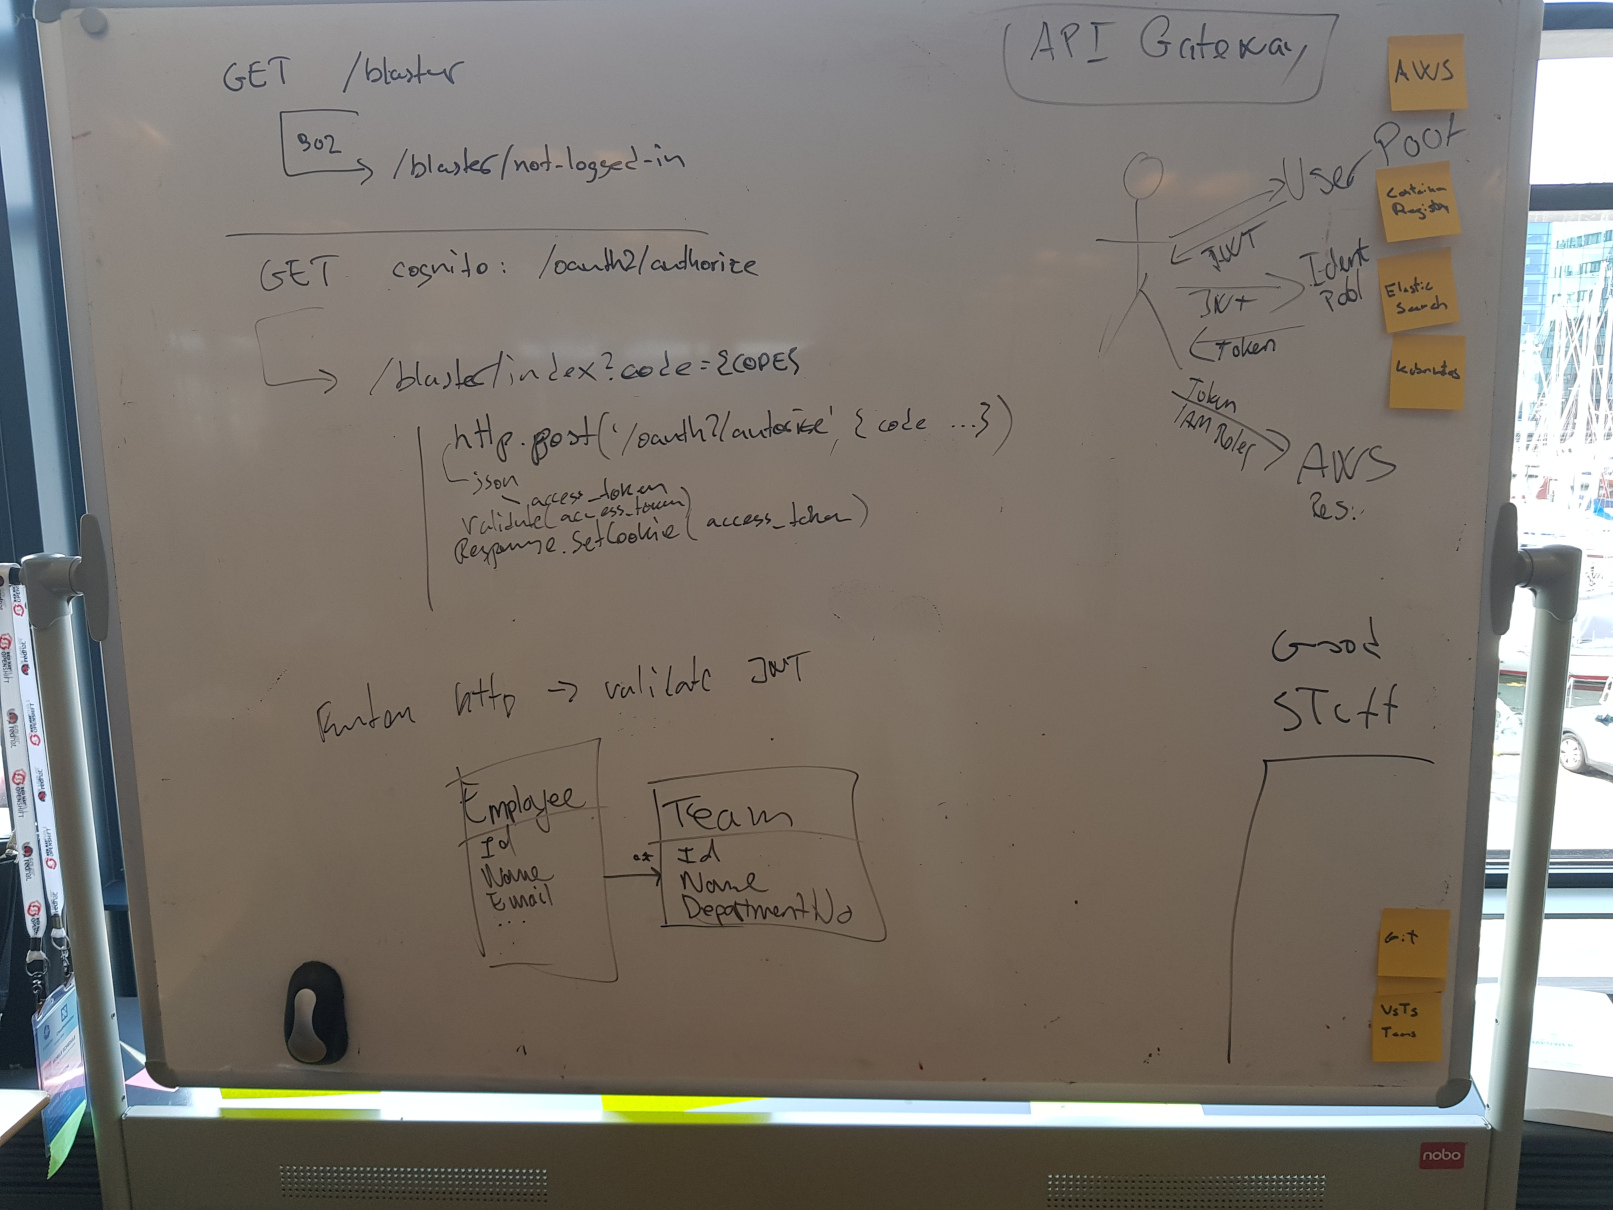 GET /blaster
302
/blaster/not-logged-in
GET cognito: /oauth2/authorize
/blaster/index?code={CODE}
http.post('/oauth2/autorize', { code ...})
json
access_token
validate(access_token)
Response.SetCookie(access_token)
http -> validate JWT
Employee
Id
Name
Email
...
Team
Id
Name
DepartmentNo
API Gateway
User Pool
JWT
Ident Pool
JWT
Token
Token
IAM Roles
AWS
Res.
Good
AWS
Container
Registry
Elastic
Search
Kubernetes
Git
VSTS
Teams
nobo